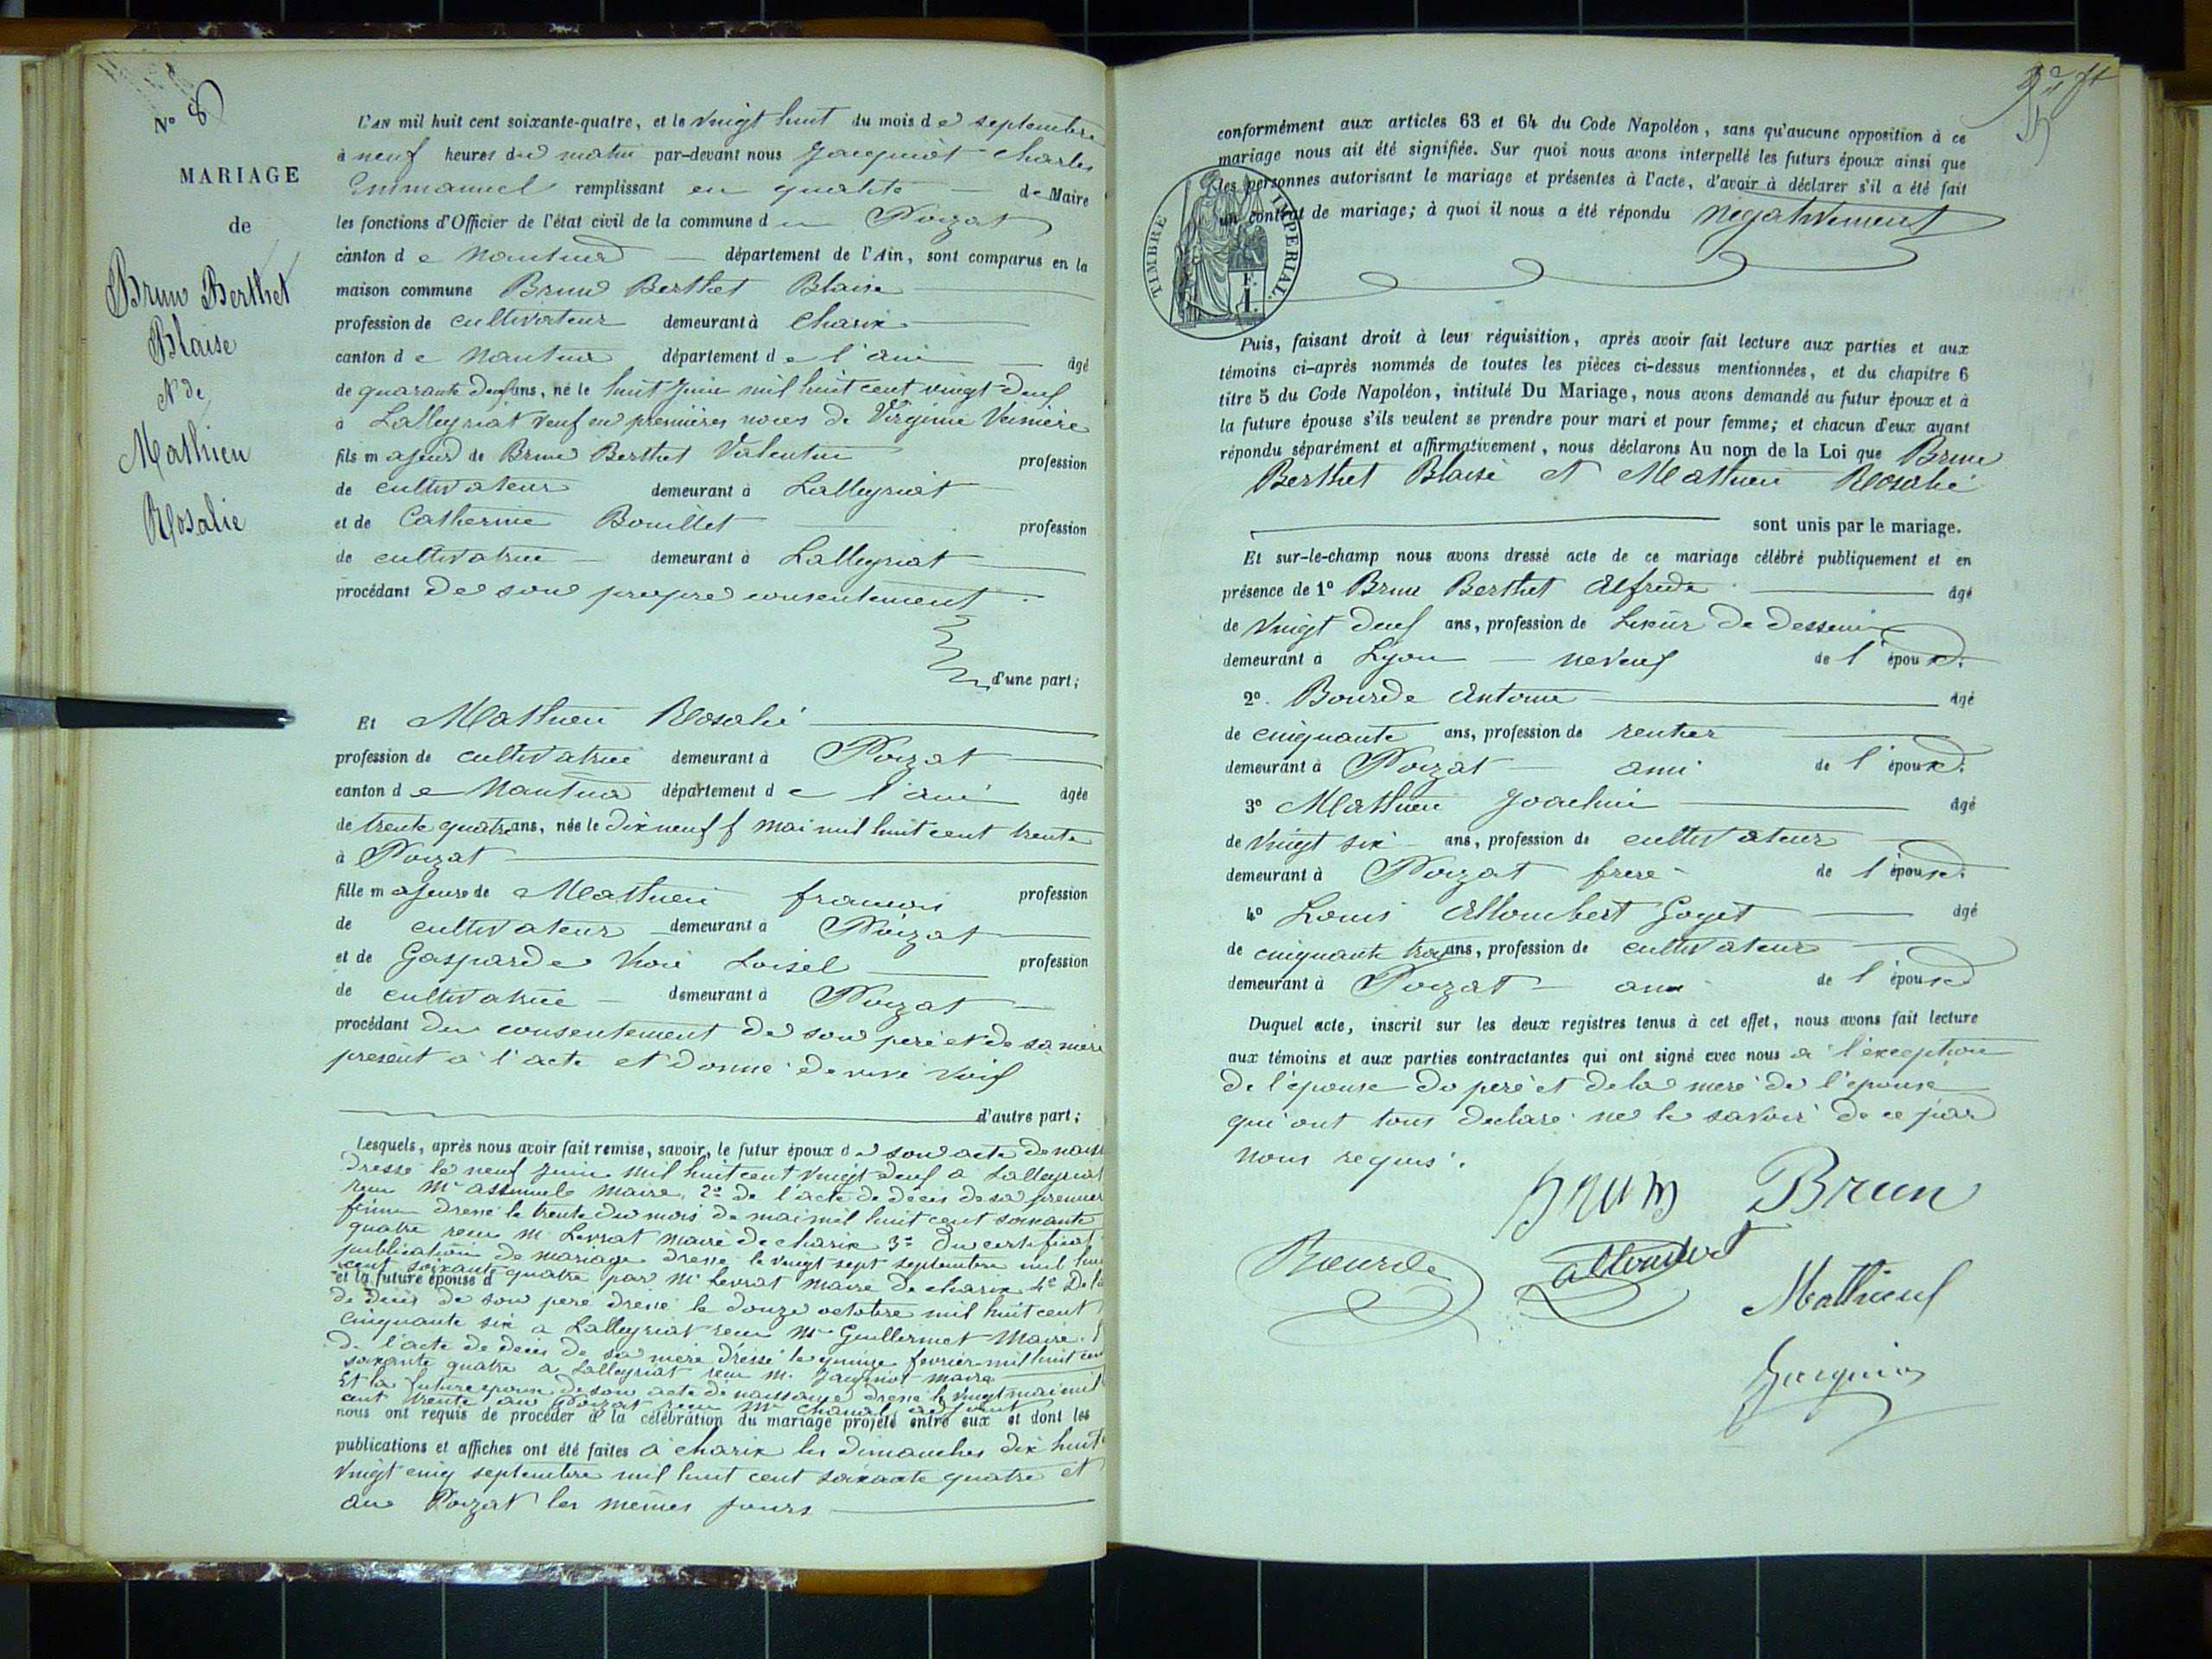 N° 8
MARIAGE
de
Brun Berthet
Blaise
Et de
Mathieu
Rosalie
L'AN mil huit cent soixante-quatre, et le vingt huit du mois de septembre
à neuf heures du matin par-devant nous Jacquiot Charles
Emmanuel remplissant en qualité de Maire
les fonctions d'Officier de l'état civil de la commune du Poizat
canton de Nantua département de l'Ain, sont comparus en la
maison commune Brun Berthet Blaise
profession de cultivateur demeurant à Charix
canton de Nantua département de l'ain âgé
de quarante deux ans, né le huit juin mil huit cent vingt deux
à Lalleyriat veuf en premières noces de Virginie
fils majeur de Brun Berthet Valentin profession
de cultivateur demeurant à Lalleyriat
et de Catherine Bouillet profession
de cultivatrice demeurant à Lalleyriat
procédant de son propre consentement
d'une part;
Et Mathieu Rosalie
profession de cultivatrice demeurant à Poizat
canton de Nantua département de l'ain âgée
de trente quatre ans, née le dix neuf mai mil huit cent trente
à Poizat
fille majeure de Mathieu francois profession
de cultivateur demeurant à Poizat
et de Gasparde Loisel profession
de cultivatrice demeurant à Poizat
procédant du consentement de son père et de sa mère
présent à l'acte et donné de vive voix
d'autre part;
Lesquels, après nous avoir fait remise, savoir, le futur époux de son acte de
dressé le neuf juin mil huit cent vingt deux a Lalleyriat
reçu Mr maire, 2° de l'acte de décès de sa première
femme dressé le trente du mois de mai mil huit cent soixante
quatre reçu Mr Levrat maire de charix 3° du certificat
publication de mariage dressé le vingt sept septembre mil huit
cent soixante quatre par Mr Levrat maire de charix 4° De
et la future épouse d
de décès de son père dressé le douze octobre mil huit cent
cinquante six a Lalleyriat reçu Mr Guillermet Maire.
de l'acte de décès de sa mère dressé le quinze fevrier mil huit cent
soixante quatre a Lalleyriat reçu M. maire
Et la future epouse de son acte de naissance dressé le vingt mai mil
cent trente au Poizat reçu Mr adjoint
nous ont requis de procéder à la célébration du mariage projeté entre eux et dont les
publications et affiches ont été faites à charix les dimanches dix huit
vingt cinq septembre mil huit cent soixante quatre et
au Poizat les mêmes jours
conformément aux articles 63 et 64 du Code Napoléon, sans qu'aucune opposition à ce
mariage nous ait été signifiée. Sur quoi nous avons interpellé les futurs époux ainsi que
les personnes autorisant le mariage et présentes à l'acte, d'avoir à déclarer s'il a été fait
un contrat de mariage; à quoi il nous a été répondu négativement
TIMBRE IMPERIAL.
F.
1.
Puis, faisant droit à leur réquisition, après avoir fait lecture aux parties et aux
témoins ci-après nommés de toutes les pièces ci-dessus mentionnées, et du chapitre 6
titre 5 du Code Napoléon, intitulé Du Mariage, nous avons demandé au futur époux et à
la future épouse s'ils veulent se prendre pour mari et pour femme; et chacun d'eux ayant
répondu séparément et affirmativement, nous déclarons Au nom de la Loi que Brun
Berthet Blaise et Mathieu Rosalie
sont unis par le mariage.
Et sur-le-champ nous avons dressé acte de ce mariage célébré publiquement et en
présence de 1° Brun Berthet Alfrede âgé
de vingt deux ans, profession de Liseur de dessein
demeurant à Lyon neveux de l'époux.
2° Bourde Antoine âgé
de cinquante ans, profession de rentier
demeurant à Poizat ami de l'époux.
3° Mathieu Joachin âgé
de vingt six ans, profession de cultivateur
demeurant à Poizat frere de l'épouse.
4° Louis Allombert Goget âgé
de cinquante trois ans, profession de cultivateur
demeurant à Poizat ami de l'épouse
Duquel acte, inscrit sur les deux registres tenus à cet effet, nous avons fait lecture
aux témoins et aux parties contractantes qui ont signé avec nous a l'exception
de l'épouse du père et de la mère de l'épouse
qui ont tous déclaré ne le savoir de ce par
nous requis.
Brun Brun
Bourde allombert
Mathieu
Jacquiot